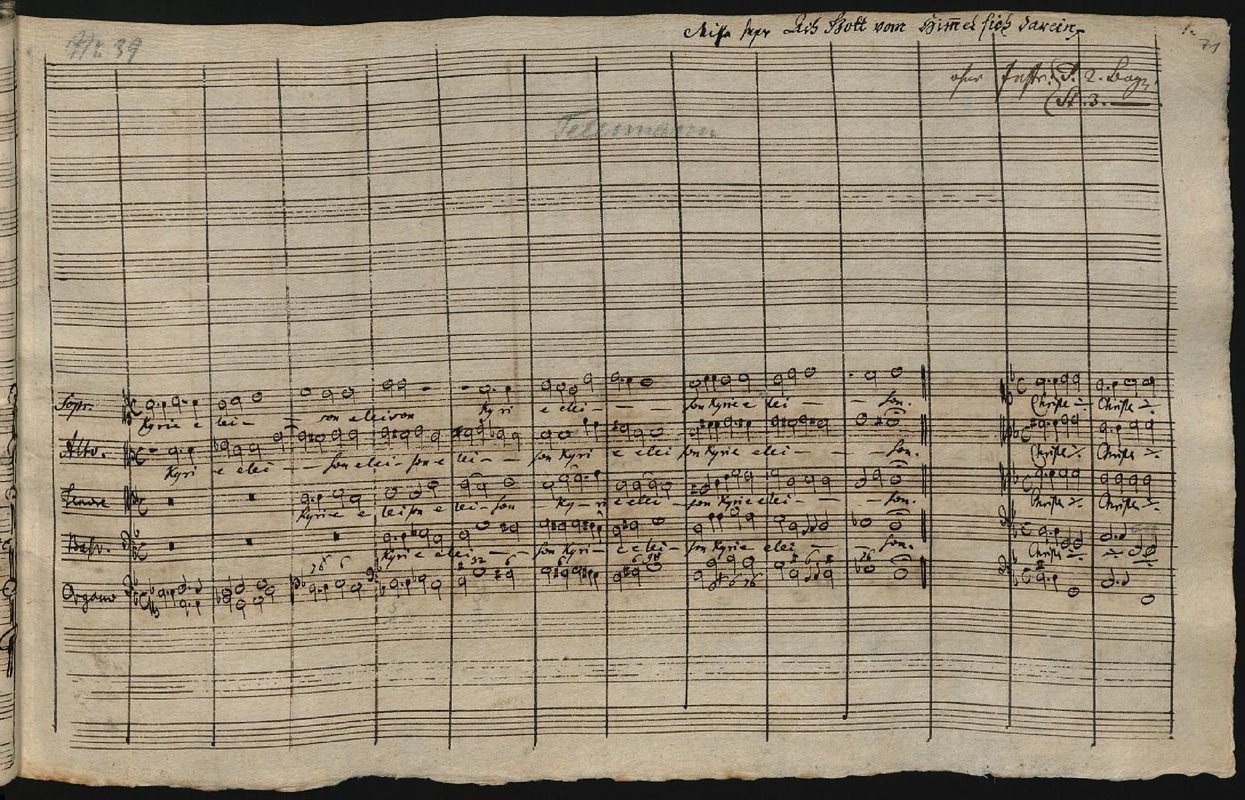 Nr. 39
Missa super Ach Gott vom Him̅el sieh darein
71
ohne Instr. P. 2. Bog.
St. 3.
Telemann
Sopr.
Kyrie e lei – son eleison Kyri e elei – – – son Kyrie e lei – – son.
Alto.
Kyri e elei – – son elei – son e lei – son Kyri e elei son Kyrie elei – – – son.
Tenore
Kyrie e leison e lei – son Ky – ri e elei – son Kyrie elei – – – son.
Bass.
Kyrie e lei – – son Kyri – e e lei – son Kyrie elei – – son.
Organo
Christe Christe
Christe Christe
Christe Christe
Christe